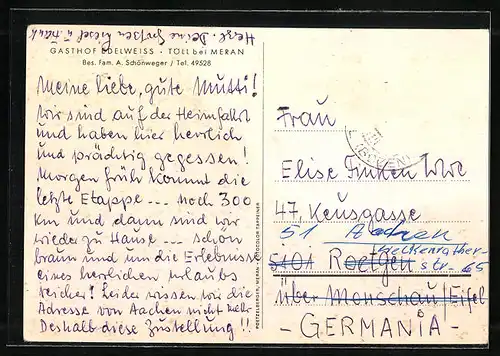 Herzl. Deine Großen Liesel u. Hans
GASTHOF EDELWEISS · TÖLL bei MERAN
Bes. Fam. A. Schönweger / Tel. 49528
Meine liebe, gute Mutti!
Wir sind auf der Heimfahrt
und haben hier herrlich
und prächtig gegessen!
Morgen früh kommt die
letzte Etappe --- noch 300
km und dann sind wir
wieder zu Hause --- schön
braun und um die Erlebnisse
eines herrlichen Urlaubs
reicher! Leider wissen wir die
Adresse von Aachen nicht mehr
Deshalb diese Zustellung!!
POETZELBERGER, MERAN
FOTOCOLOR TAPPEINER
Frau
Elise Finken Wwe
47, Keusgasse
51 Aachen
Vaelkenrather-
str. 65
5101 Roetgen
über Monschau/Eifel
- GERMANIA -